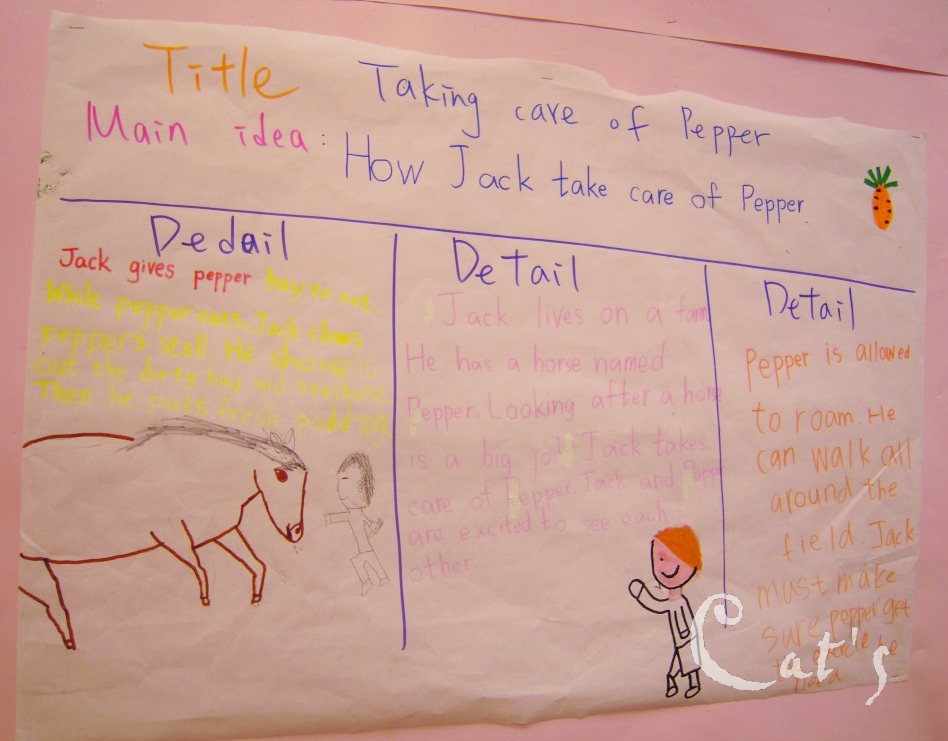 Title Taking care of Pepper
Main idea: How Jack take care of Pepper.
Dedail
Jack gives pepper hay to eat.
While pepper eats, Jack cleans
pepper's stall. He shovels
out the dirty hay and sawdust.
Then he puts fresh padding
Detail
Jack lives on a farm
He has a horse named
Pepper. Looking after a horse
is a big job! Jack takes
care of Pepper. Jack and Pepper
are excited to see each
other.
Detail
Pepper is allowed
to roam. He
can walk all
around the
field. Jack
must make
sure pepper get
he
Cat's